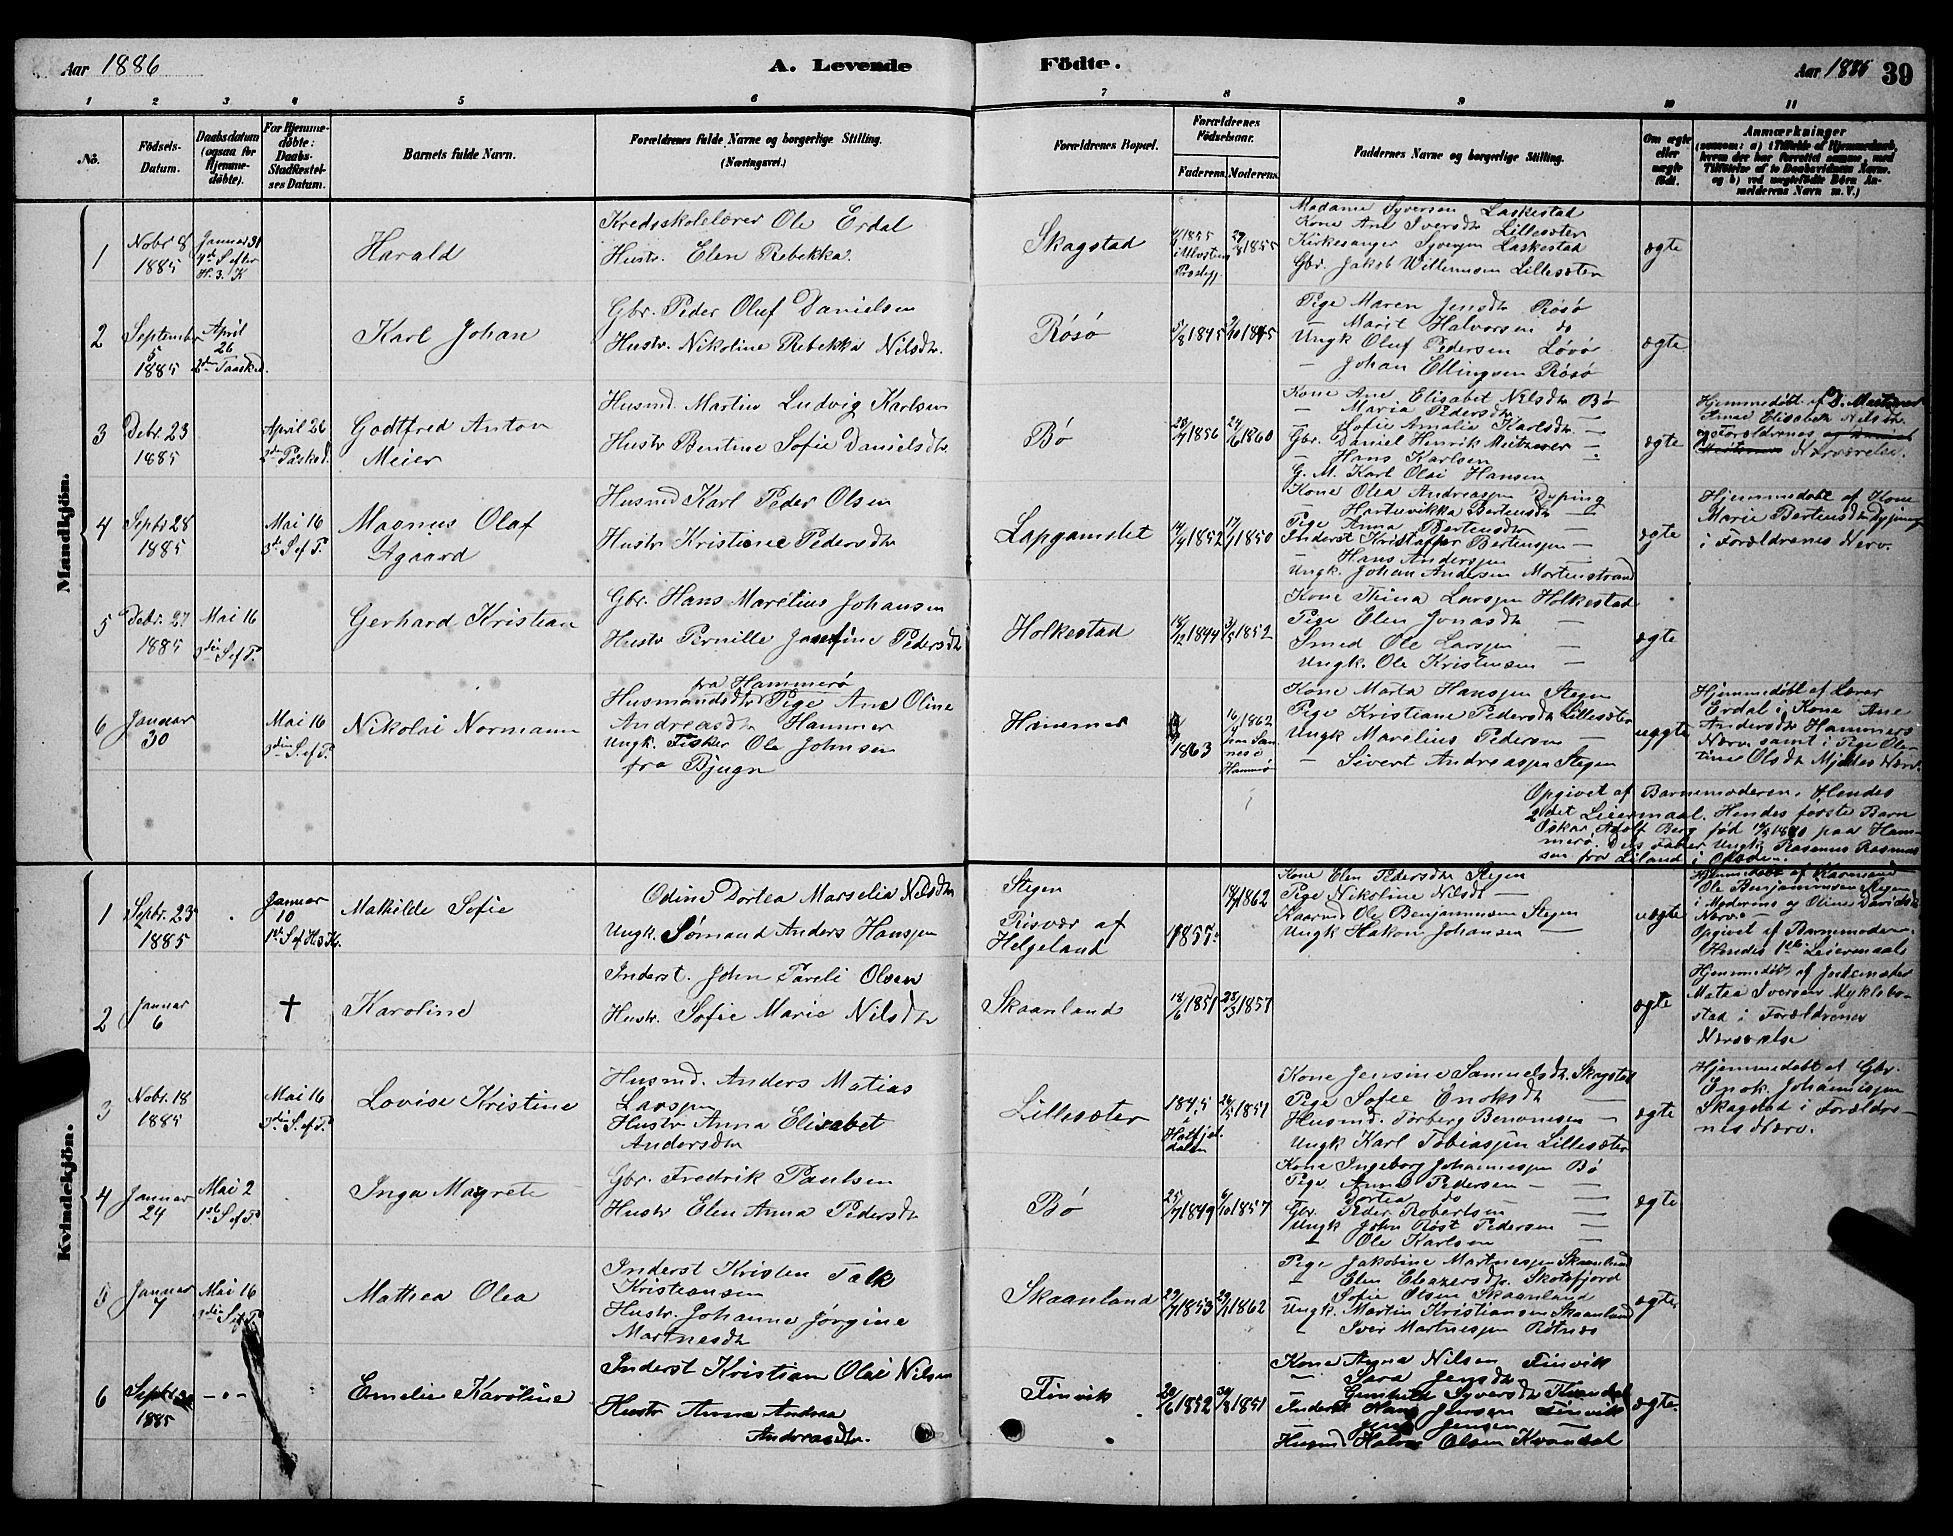 Aar 1886
A. Levende
Födte.
Aar 1886
39
1 2 3 4 5 6 7 8 9 10 11
No.
Födsels-Datum.
Daabsdatum (ogsaa for Hjemme-døbte).
For Hjemme-döbte: Daabs-Stadfæstel-ses Datum.
Barnets fulde Navn.
Forældrenes fulde Navne og borgerlige Stilling.
(Næringsvei.)
Forældrenes Bopæl.
Forældrenes Födselsaar.
Faderens. Moderens.
Faddernes Navne og borgerlige Stilling.
Om ægte eller uægte født.
Anmærkninger
Mandkjön.
1
Nobr. 8
1885
Januar 31
4de S efter
H. 3. K
Harald
Kredsskolelærer Ole Erdal
Hustr. Elen Rebekka
Skagstad
1855
1855
Madame Syversen Laskestad
Kone Ane Iversdtr Lillesæter
Kirkesanger Syversen Laskestad
Gbr. Jakob Willumsen Lillesæter
ægte
2
September
5
1885
April
26
2den Paaskd.
Karl Johan
Gbr. Peder Oluf Danielsen
Hustr. Nikoline Rebekka Nilsdtr.
Røsø
5/8 1845
1845
Pige Maren Jensdtr Røsø
— Marit Halvorsen do
Ungk Oluf Pedersen Løvø
— Johan Ellingsen Røsø
ægte
3
Debr. 23
1885
April 26
2den Paaskd.
Godtfred Anton
Meier
Husmd. Martin Ludvig Karlsen
Hustr Bentine Sofie Danielsdtr.
Bø
1856
24/6 1860
Kone Ane Elisabet Nilsdtr Bø
— Maria Pedersdtr —
— Sofie Amalie Karlsdtr —
Gbr. Daniel Henrik Meitzner —
— Hans Karlsen —
G. M. Karl Olai Hansen
ægte
Hjemmedøbt af
Anne Elisabeth Nilsdtr
og Forældrenes
Nærværelse.
4
Septbr 28
1885
Mai 16
3die S. ef P.
Magnus Olaf
Agaard
Husmd Karl Peder Olsen
Hustr Kristine Pedersdtr
Lapgamslet
1852
1850
Kone Olea Andreassen Dyping
— Hartvikka Bertensdtr —
Pige Anna Bertensdtr —
Inderst Kristoffer Bertensen —
— Hans Andersen —
Ungk. Johan Andersen Mortenstrand
ægte
Hjemmedøbt af Kone
Marie Bertensdtr Dyping
i Forældrenes Nærv.
5
Debr. 27
1885
Mai 16
3die S. ef P.
Gerhard Kristian
Gbr. Hans Marelius Johansen
Hustr Pernille Josefine Pedersdtr
Holkestad
18/12 1844
1852
Kone Thina Larsen Holkestad
Pige Elen Jonasdtr —
Smed Ole Larsen —
Ungk. Ole Kristensen —
ægte
6
Januar
30
Mai 16
3die S. ef P.
Nikolai Normann
fra Hammerø
Husmandsdtr Pige Ane Oline
Andreasdtr Hammer
Ungk. Fisker Ole Johnsen
fra Bjugn
1863
1862
Kone Marta Hanssen Stegen
Pige Kristiane Pedersdtr Lillesæter
Ungk Marelius Pedersen —
— Sivert Andreassen Stegen
uægte
Hjemmedøbt af Lærer
Erdal i Kone Ane
Andersdtr Hammers
Nærv. samt i Pige Olen-
tine Olsdtr Mjeldes Nærv
Opgivet af Barnemoderen. Hendes
2det Leiermaal. Hendes første Barn
Oskar Adolf Berg fød 1880 paa Ham-
merø. Dets Fader Ungk Rasmus Rasmus
sen fra Liland i Ofoden.
Kvindekjön.
1
Septbr. 23
1885
Januar
10
1st S ef H3K.
Mathilde Sofie
Odine Dortea Marselia Nilsdtr
Ungk. Sømand Anders Hanssen
Stegen
Risvær af
Helgeland
1855
1862
Kone Elen Pedersdtr Stegen
Pige Nikoline Nilsdtr —
Kaarmd Ole Benjaminsen Stegen
Ungk Hakon Johansen —
uægte
Hjemmedøbt af Kaarmand
Ole Benjaminsen Stegen
i Moderens og Oline Davidsdtr
Nærv. —
Opgivet af Barnemoderen.
Hendes 1ste Leiermaal
2
Januar
6
✝
Karoline
Inderst. John Pareli Olsen
Hustr. Sofie Marie Nilsdtr
Skaanland
18/6 1851
23/3 1857
ægte
Hjemmedøbt af Jordemoder
Matea Iversen Myklebo-
stad i Forældrenes
Nærværelse
3
Nobr. 18
1885
Mai 16
3die S. ef P.
Lovise Kristine
Husmd. Anders Matias
Larssen
Hustr Anna Elisabet
Andersdtr
Lillesæter
1845
i Hatfjel-
dalen
1851
Kone Jensine Samuelsdtr Skagstad
Pige Sofie Enoksdtr —
Husmd. Torberg Benonisen —
Ungk Karl Tobiassen Lillesæter
ægte
Hjemmedøbt af Gbr.
Enok Johannessen
Skagstad i Forældre-
nes Nærv.
4
Januar
24
Mai 2
1st S ef P
Inga Magrete
Gbr. Fredrik Paulsen
Hustr Elen Anna Pedersdtr
Bø
25/7 1849
1857
Kone Ingeborg Johannessen Bø
Pige Anna Pedersen — —
— Dortea do —
Gbr. Peder Robertsen —
Ungk John Røst Pedersen —
— Ole Karlsen —
ægte
5
Januar
7
Mai 16
3die S ef P
Mathea Olea
Inderst Kristen Falk
Kristiansen
Hustr. Johanne Jørgine
Martnesdtr
Skaanland
1853
1862
Pige Jakobine Martnessen Skaanland
— Elen Eleazersdtr Skotsfjord
— Sofie Olsen Skaanland
Ungk. Martin Kristiansen Skaanland
— Iver Martnessen Røtnes
ægte
6
Septbr
1885
— " —
Emelie Karoline
Inderst Kristian Olai Nilsen
Hustr Anna Andrea
Andreasdtr.
Finvik
1852
30/8 1851
Kone Anna Nilsen Finvik
— Sara Jensdtr —
— Syversdtr Kvandal
Inderst Hans Jensen Finvik
— Jens Jensen —
Husmd Olsen Kvandal
ægte.